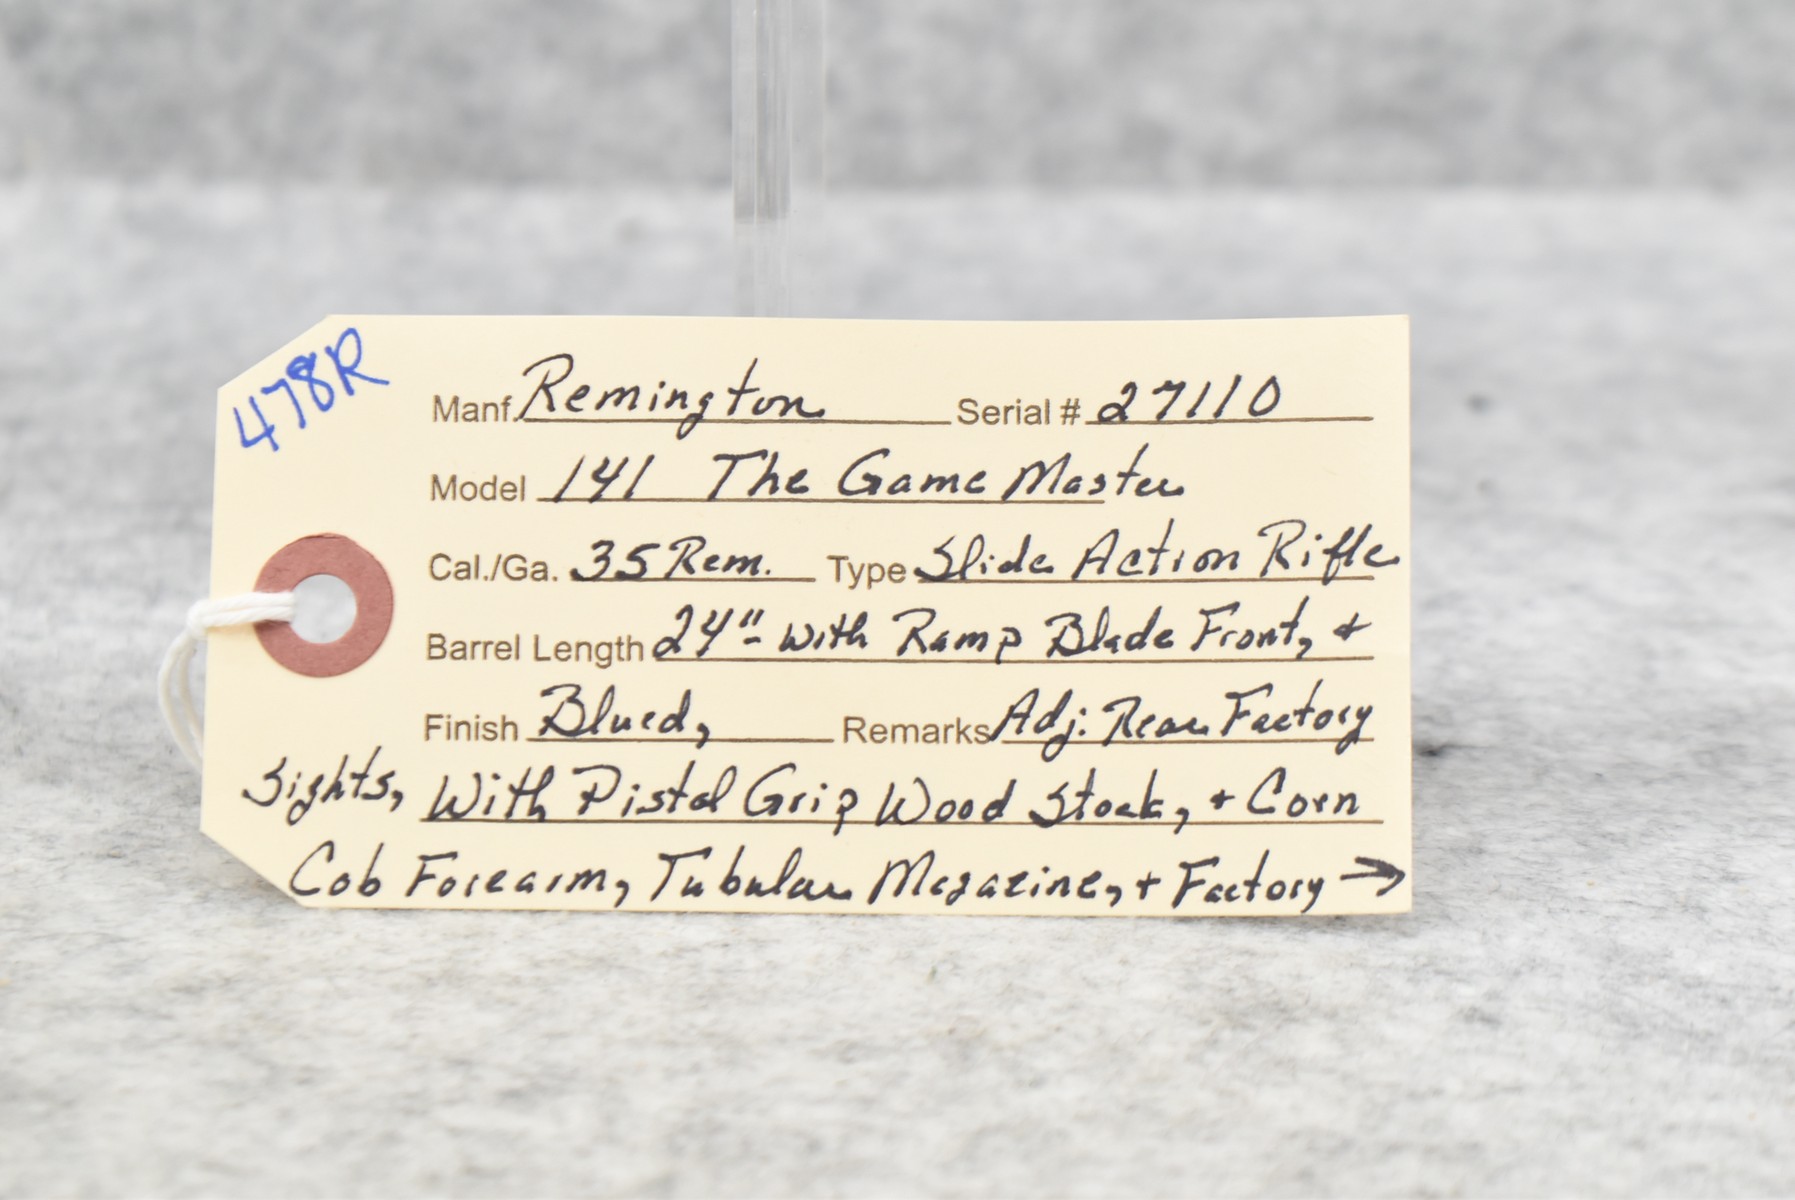 478R
Manf. Remington Serial # 27110
Model 141 The Game Master
Cal./Ga. 35 Rem. Type Slide Action Rifle
Barrel Length 24" - with Ramp Blade Front, +
Finish Blued, Remarks Adj. Rear Factory
Sights, With Pistol Grip Wood Stock, + Corn
Cob Forearm, Tubular Magazine, + Factory →